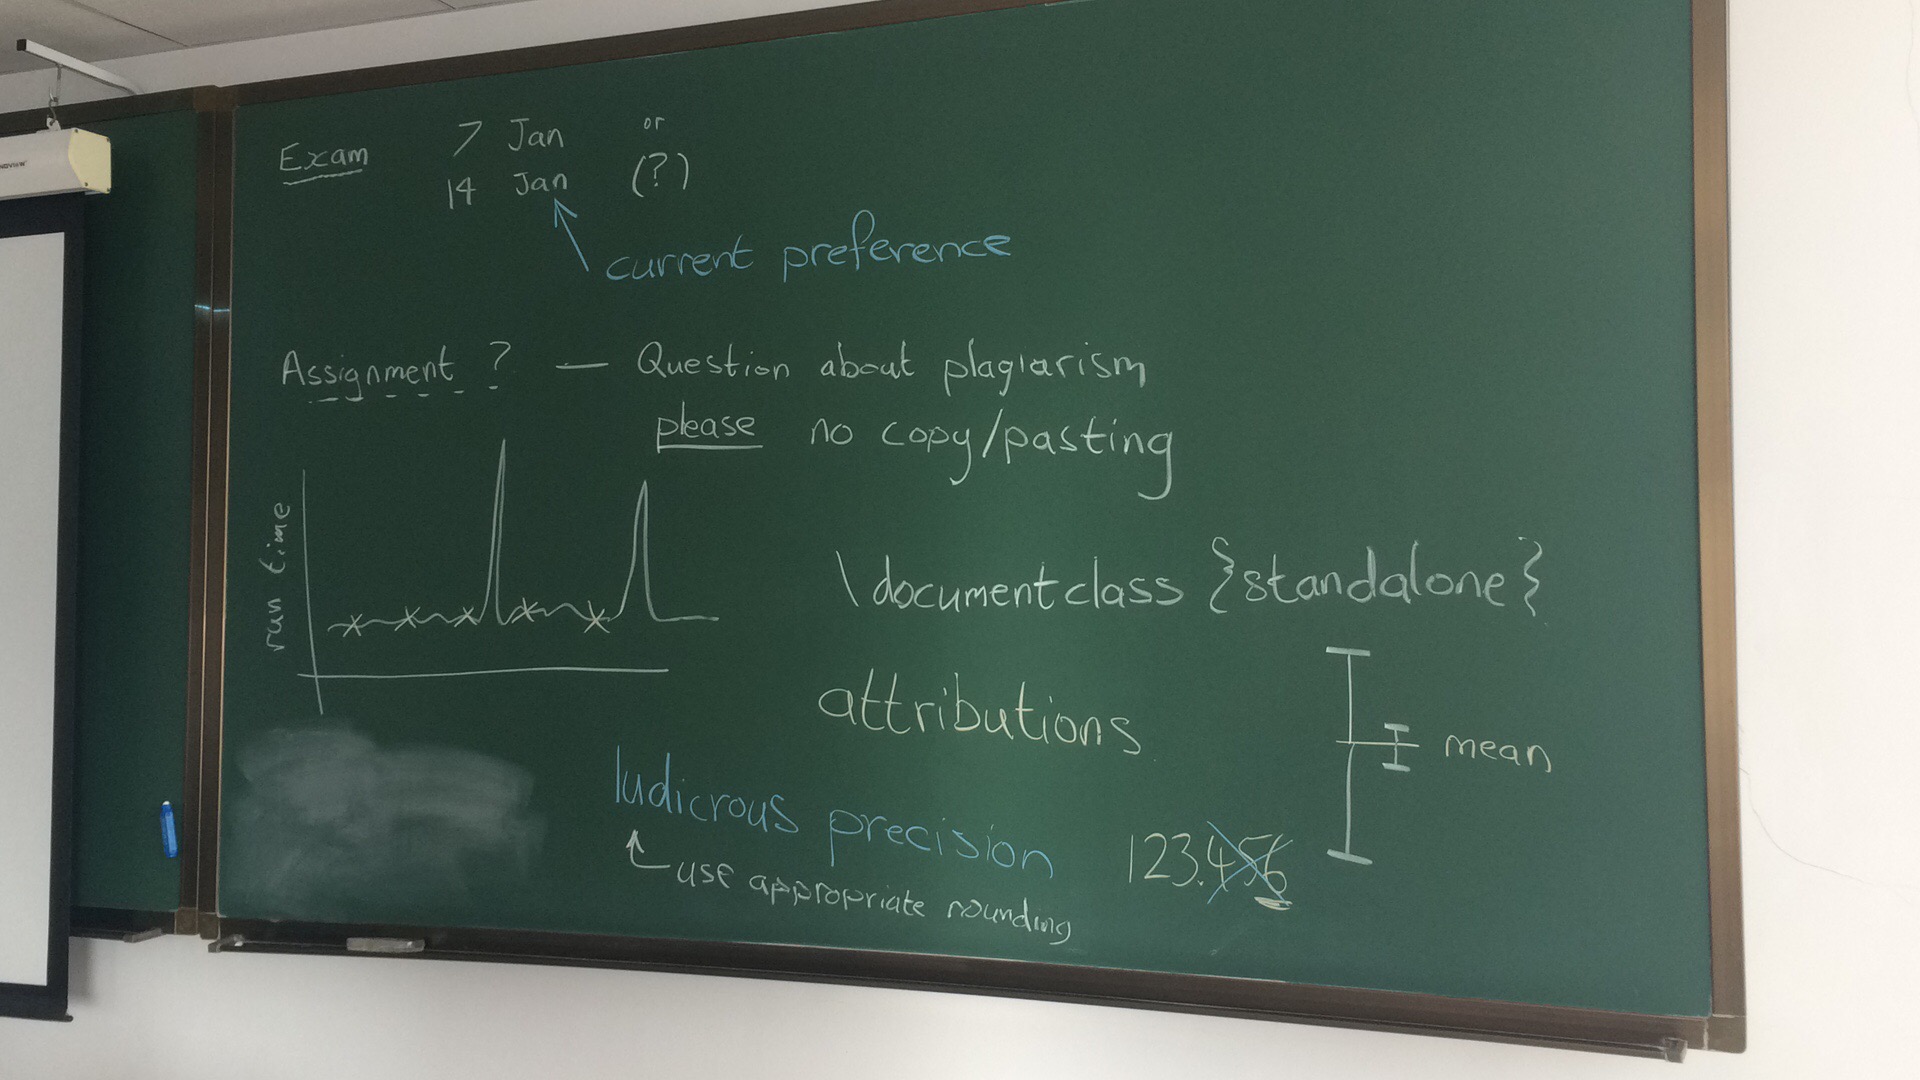 Exam
7 Jan or
14 Jan (?)
current preference
Assignment ? — Question about plagiarism
please no copy/pasting
run time
\documentclass }standalone{
attributions
mean
ludicrous precision
123.456
use appropriate rounding